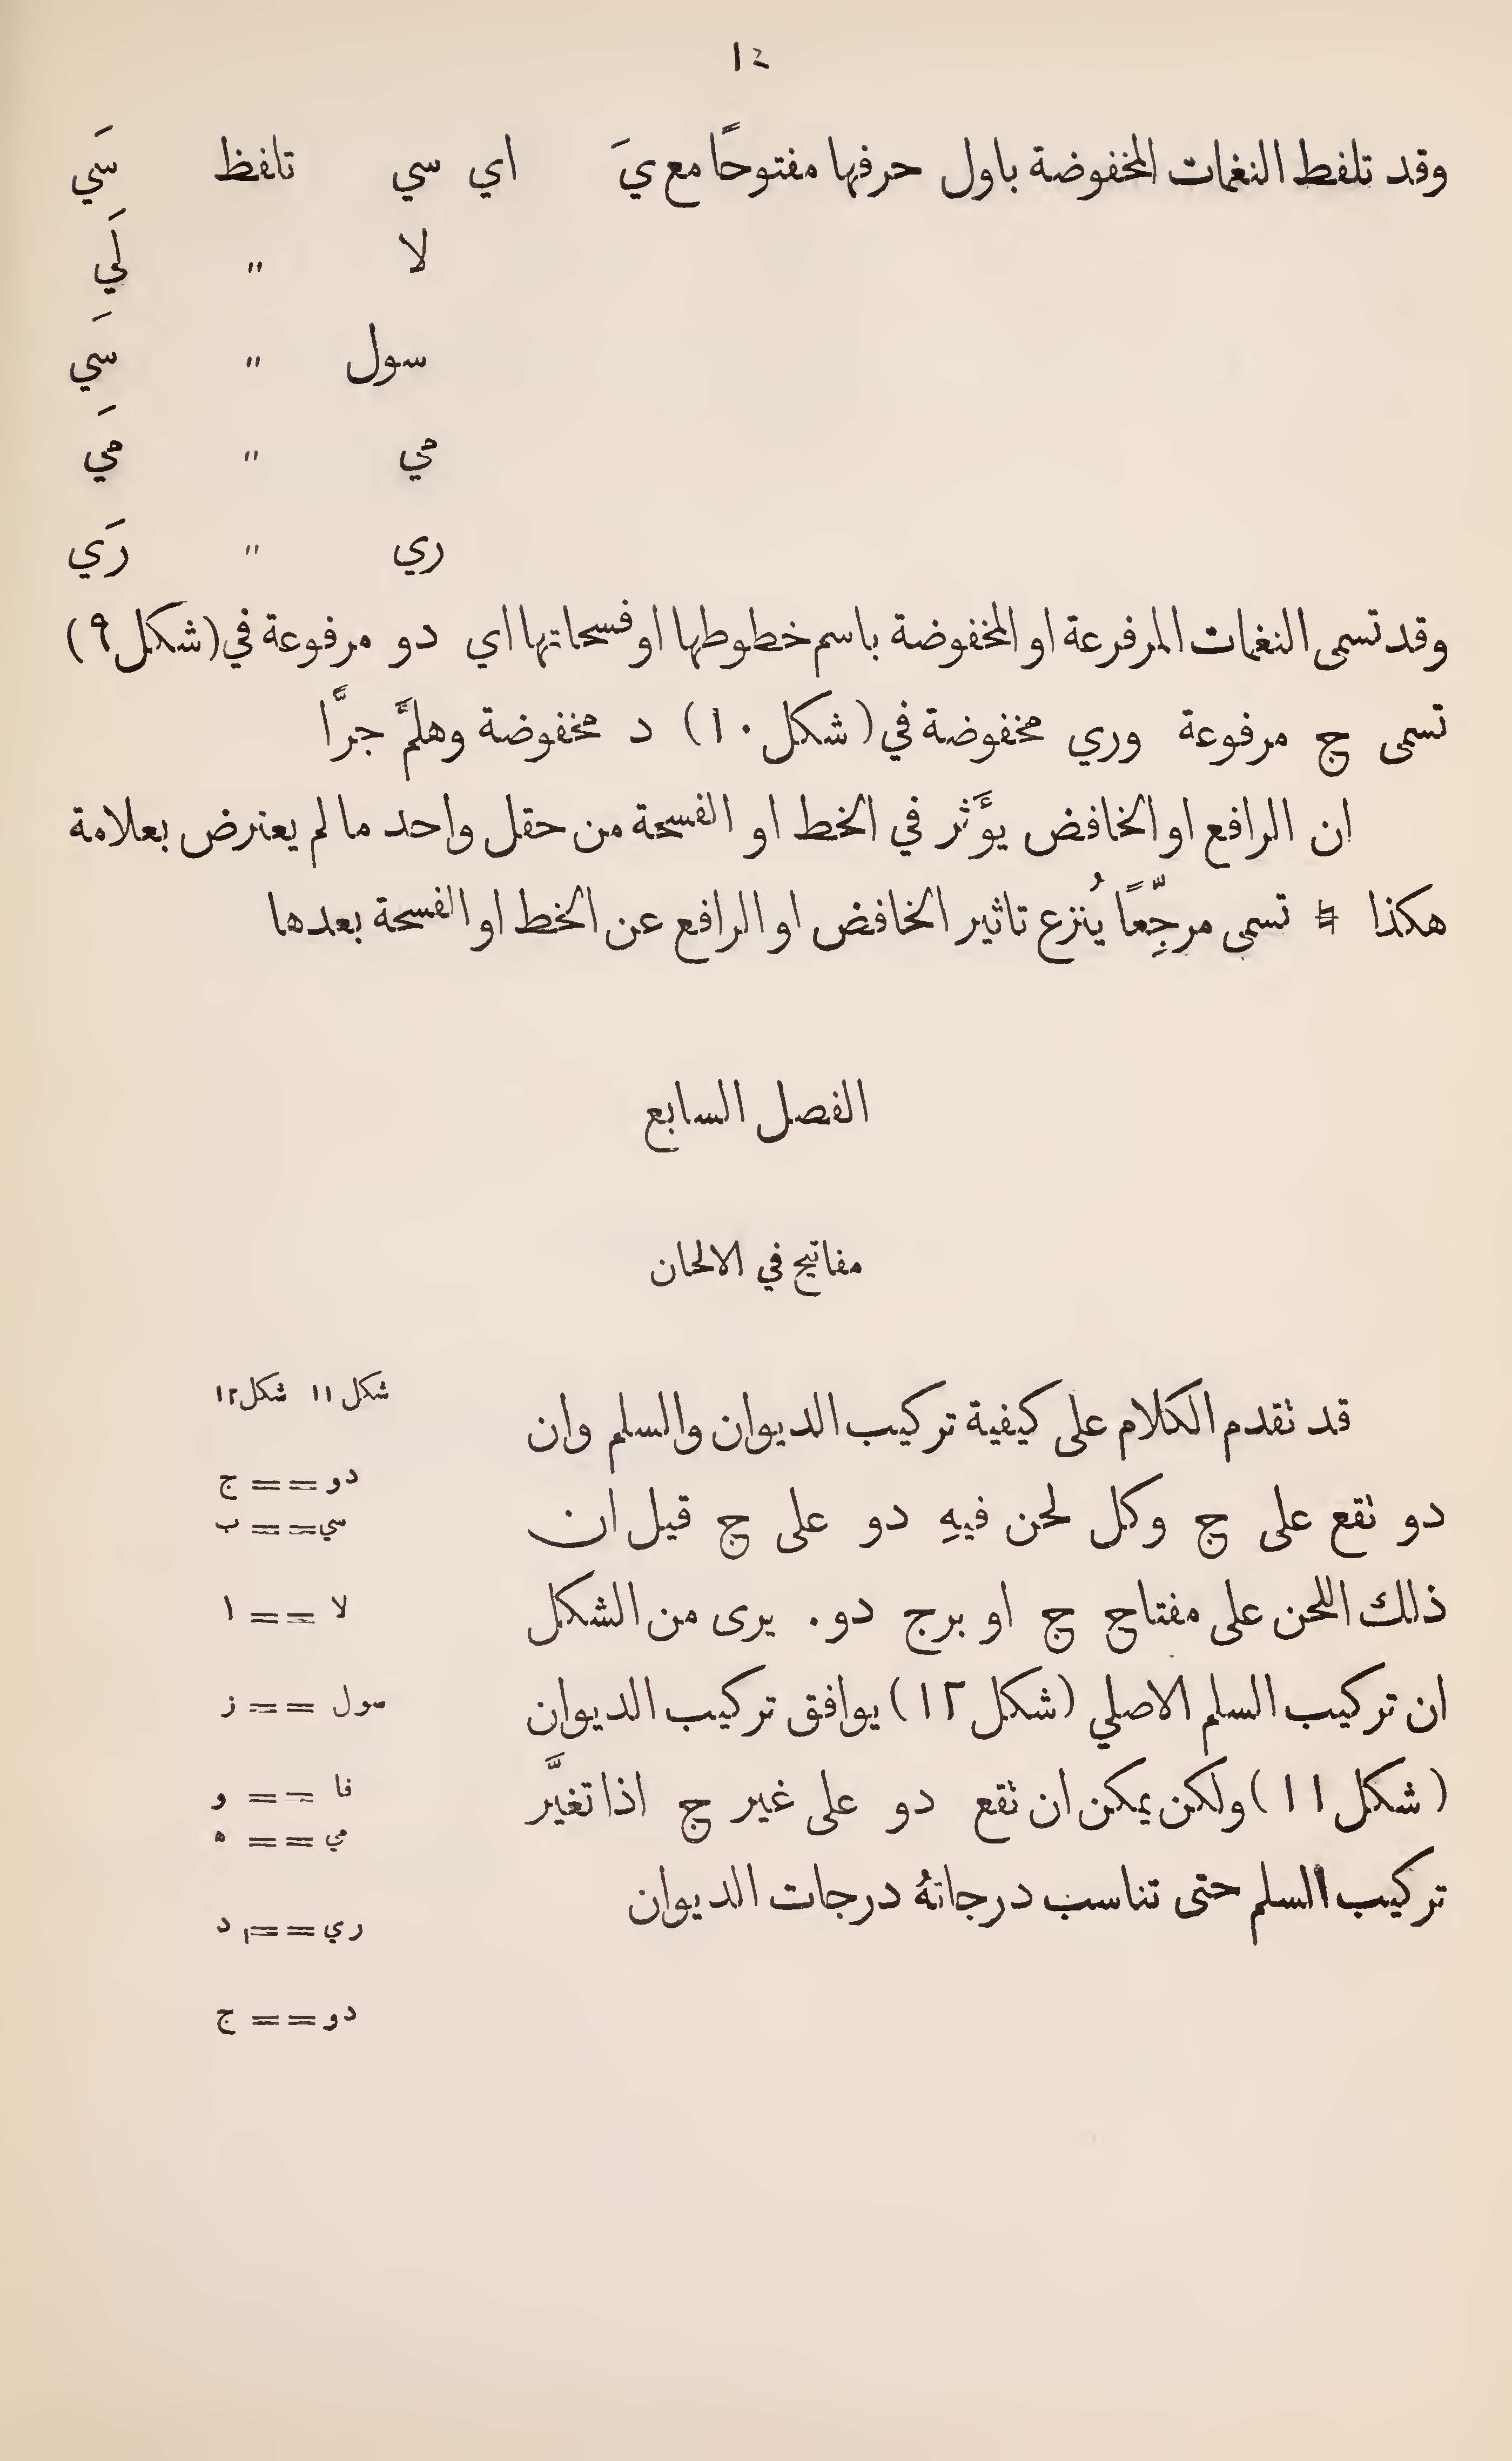 ١٤
وقد تلفط النغمات المخفوضة باول حرفها مفتوحًا مع يَ اي سي تلفظ سَي
لا " لَي
سول " سَي
مي " مَي
ري " رَي
وقد تسمى النغمات المرفرعة او المخفوضة باسم خطوطها او فسحاتها اي دو مرفوعة في (شكل ٩)
تسمى ج مرفوعة وري مخفوضة في (شكل ١٠) د مخفوضة وهلمَّ جرًّا
ان الرافع او الخافض يؤَثر في الخط او الفسحة من حقل واحد ما لم يعترض بعلامة
هكذا ♮ تسمى مرجِّعًا يُنزع تاثير الخافض او الرافع عن الخط او الفسحة بعدها
الفصل السابع
مفاتيح في الالحان
قد تقدم الكلام على كيفية تركيب الديوان والسلم وان
دو تقع على ج وكل لحن فيهِ دو على ج قيل ان
ذلك اللحن على مفتاح ج او برج دو. يرى من الشكل
ان تركيب السلم الاصلي (شكل ١٢) يوافق تركيب الديوان
(شكل ١١) ولكن يمكن ان تقع دو على غير ج اذا تغيَّر
تركيب السلم حتى تناسب درجاتهُ درجات الديوان
شكل ١١ شكل ١٢
دو == ج
سي == ب
لا == ا
سول == ز
فا == و
مي == ه
ري == د
دو == ج